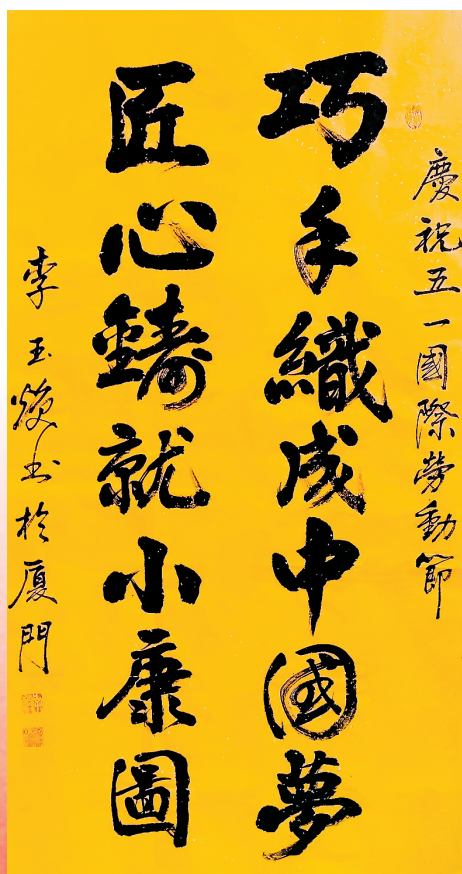 慶祝五一國際勞動節
巧手織成中國夢
匠心鑄就小康圖
李玉焕书於厦門